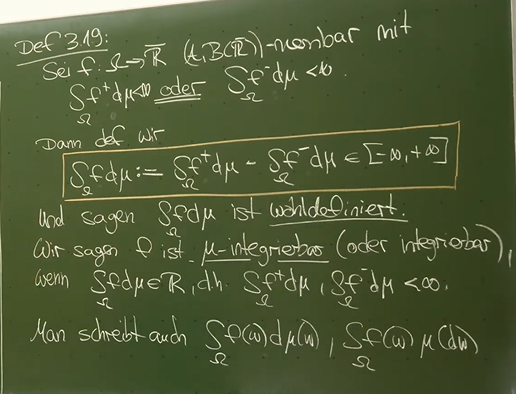 Def 3.19:
Sei f: Ω → ℝ̄ (A, B(ℝ̄))-messbar mit
∫_Ω f⁺dμ < ∞ oder ∫_Ω f⁻dμ < ∞.
Dann def wir
∫_Ω f dμ := ∫_Ω f⁺dμ - ∫_Ω f⁻dμ ∈ [-∞, +∞]
und sagen ∫_Ω f dμ ist wohldefiniert.
Wir sagen f ist μ-integrierbar (oder integrierbar),
wenn ∫_Ω f dμ ∈ ℝ, d.h. ∫_Ω f⁺dμ, ∫_Ω f⁻dμ < ∞.
Man schreibt auch ∫_Ω f(ω)dμ(ω), ∫_Ω f(ω) μ(dω)